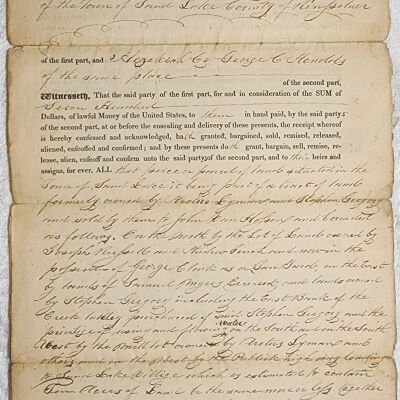 of the Town of Sand Lake County of Rensselaer
of the first part, and Hezekiah C & George C Arnolds
of the same place
of the second part,
Witnesseth, That the said party of the first part, for and in consideration of the SUM of
Seven Hundred
Dollars, of lawful Money of the United States, to them in hand paid, by the said partys
of the second part, at or before the ensealing and delivery of these presents, the receipt whereof
is hereby confessed and acknowledged, hath granted, bargained, sold, remised, released,
aliened, enfeoffed and confirmed; and by these presents doth grant, bargain, sell, remise, re-
lease, alien, enfeoff and confirm unto the said partys of the second part, and to their heirs and
assigns, for ever, ALL that piece or parcel of land situated in the
Town of Sand Lake it being part of a tract of land
formerly owned by Lyman and Stephen Gregory
and sold by them to John and bounded
as follows. On the North by the Lot of Land owned by
Joseph and Andrew Finch and now in the
possession of George Clark as a Tan Yard, on the East
by lands of Samuel Deceased, and lands owned
by Stephen Gregory including the East Bank of the
Creek lately purchased of said Stephen Gregory and the
privilege of using and flowing water on the South and on the South
West by the Mill lot owned by Lyman and
others and on the West by the Publick high way leading
to Sand Lake Village which is estimated to contain
Acres of Land be the same more or less together